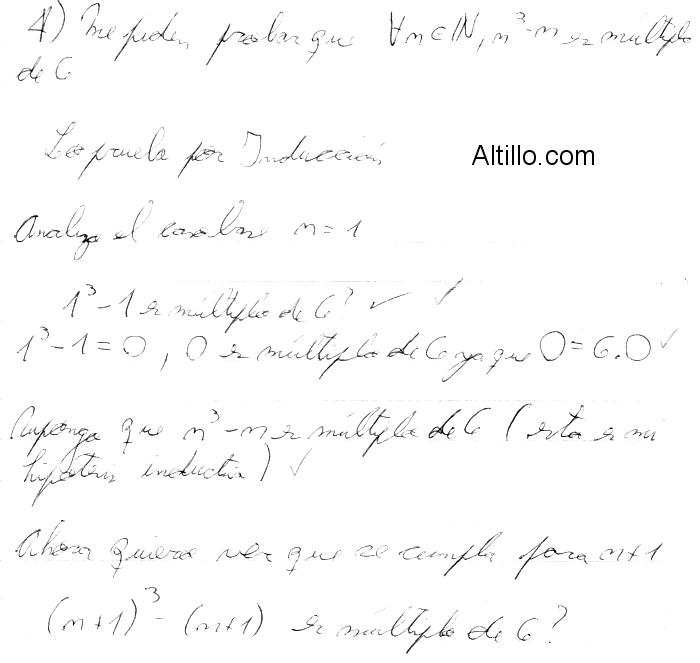 4) Me piden probar que ∀n∈ℕ, n³-n es múltiplo
de 6
Lo pruebo por Inducción
Altillo.com
Analizo el caso base n=1
1³-1 es múltiplo de 6? ✓ ✓
1³-1=0, 0 es múltiplo de 6 ya que 0=6.0 ✓
Supongo que n³-n es múltiplo de 6 (esta es mi
hipótesis inductiva) ✓
Ahora quiero ver que se cumpla para n+1
(n+1)³-(n+1) es múltiplo de 6?